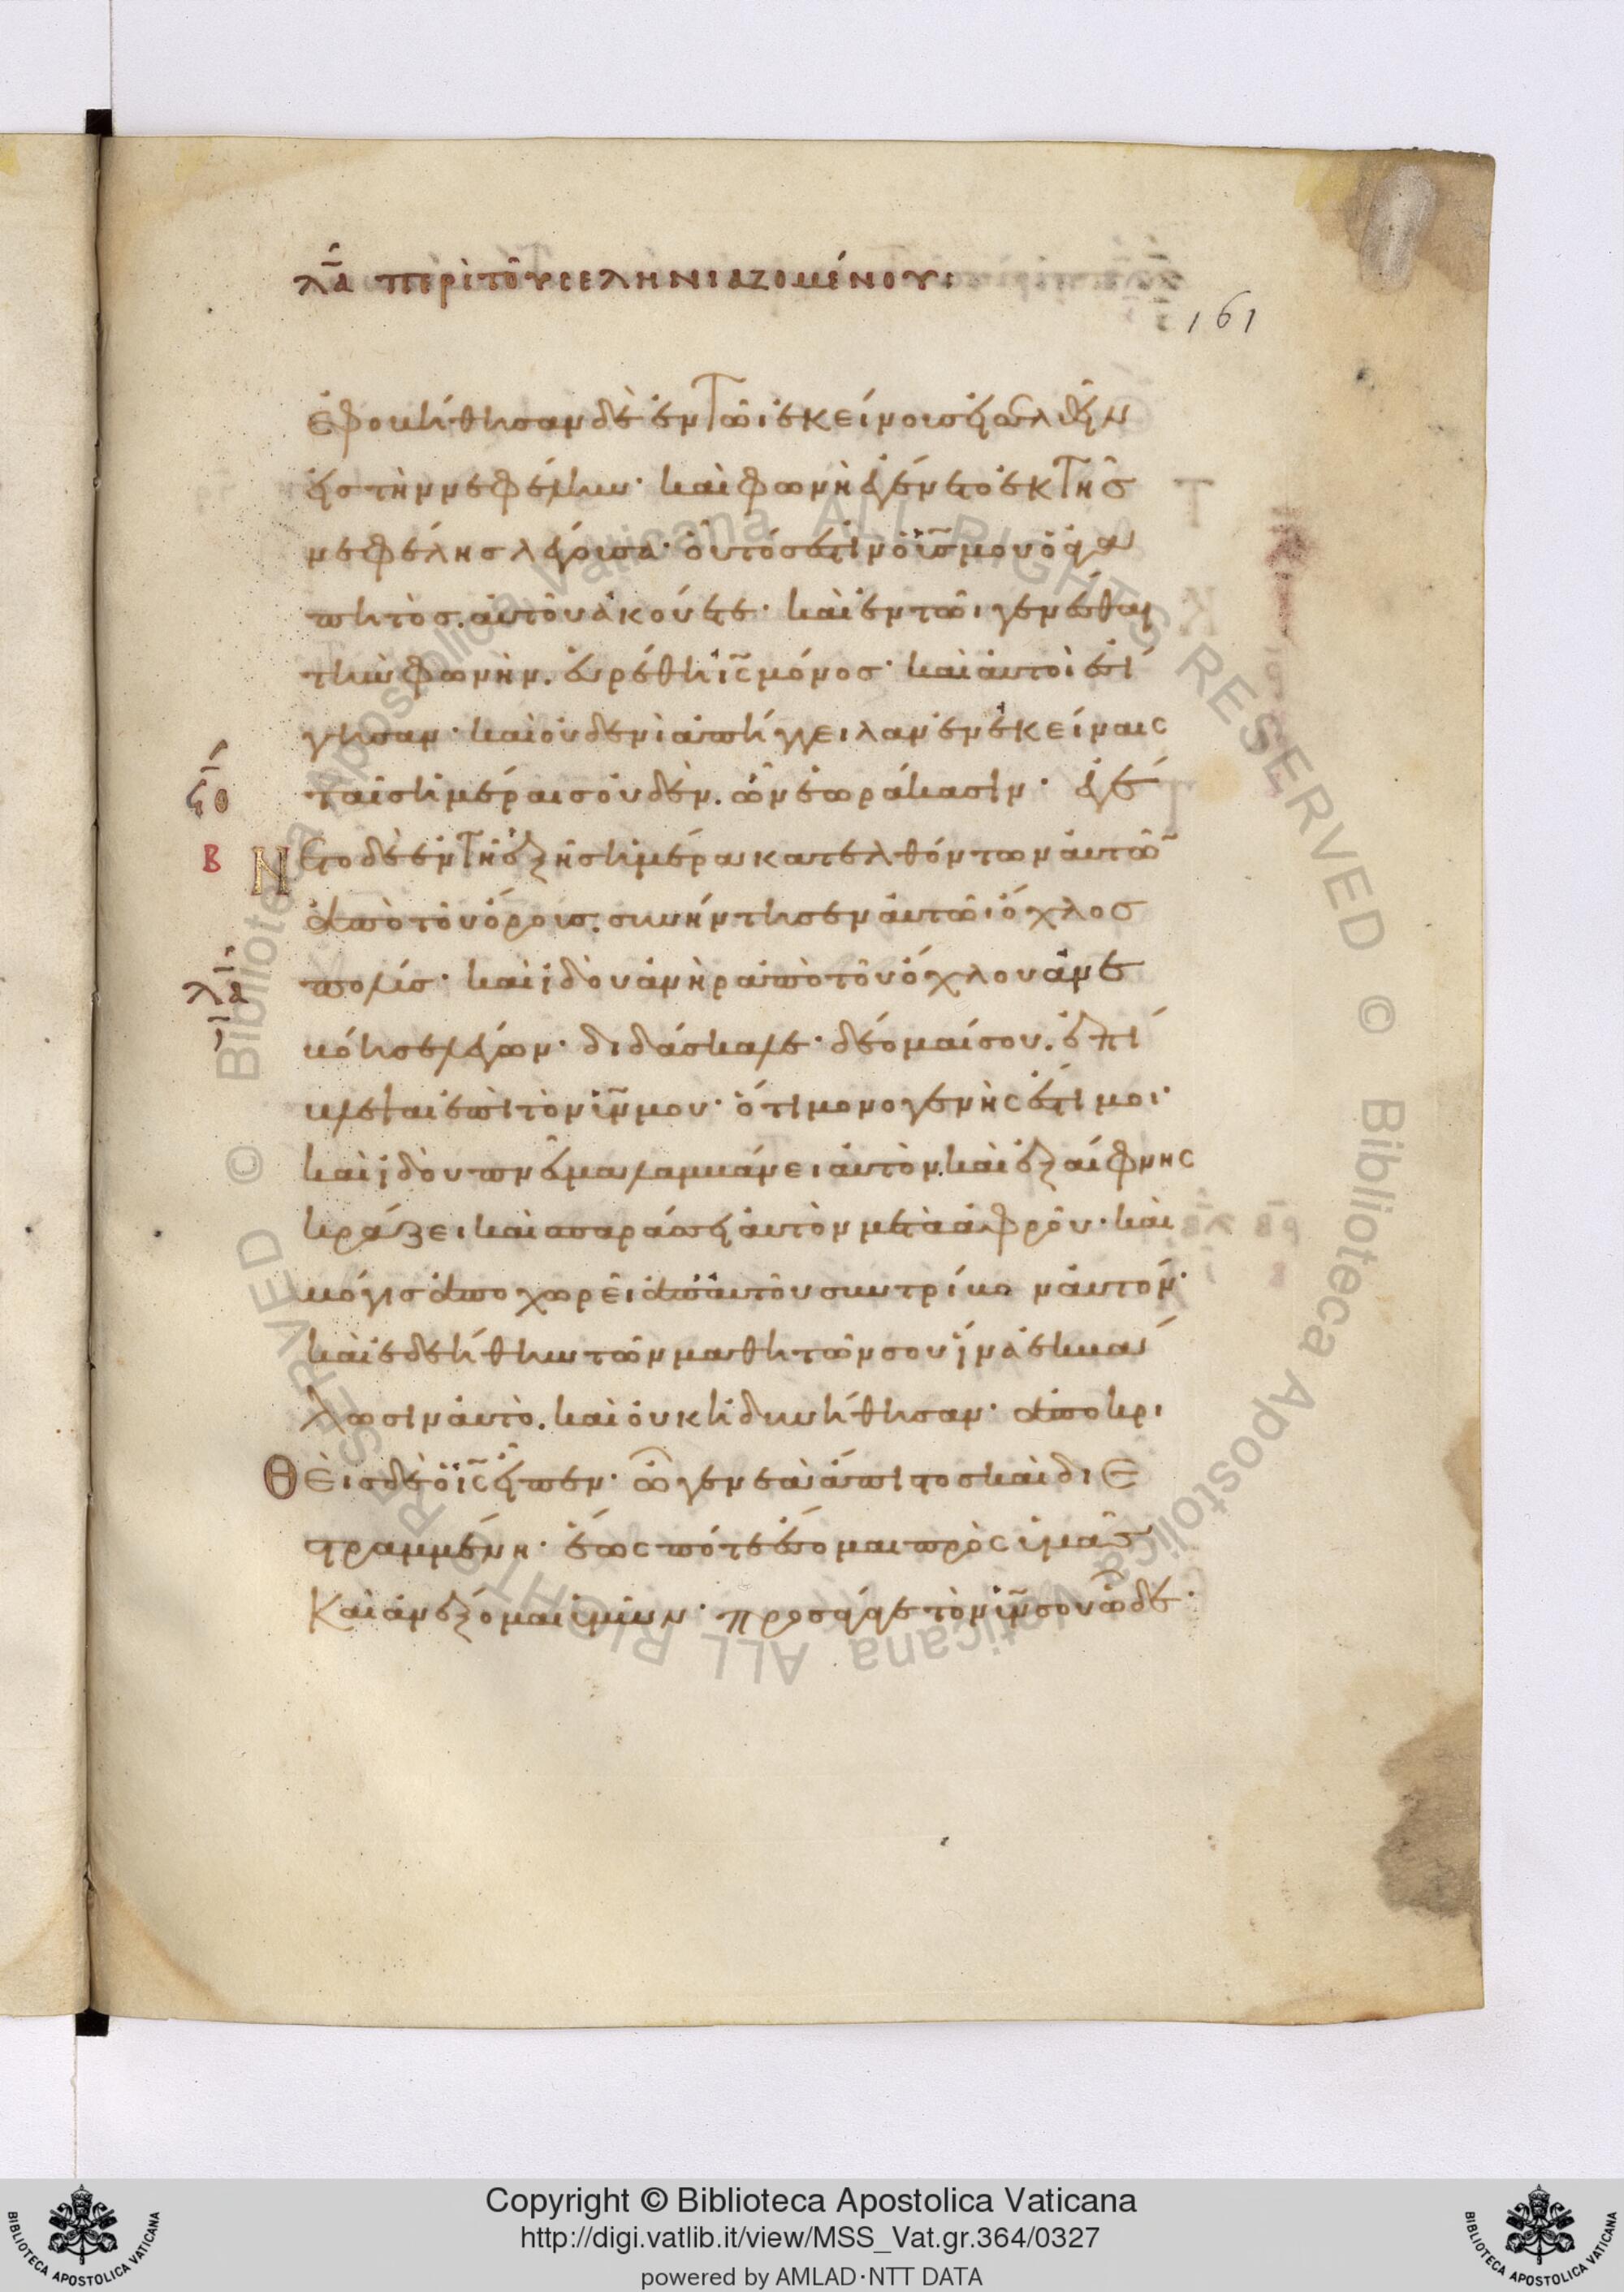 λ̅α̅ περὶ τοῦ σεληνιαζομένου:
161
ἐφοβήθησαν δὲ ἐν τῶι ἐκείνους εἰσελθεῖν
εἰς τὴν νεφέλην· καὶ φωνὴ ἐγένετο ἐκ τῆς
νεφέλης λέγουσα· οὗτός ἐστιν ὁ υἱ̅ς̅ μου ὁ ἀγα
πητὸς. αὐτοῦ ἀκούετε· καὶ ἐν τῶι γενέσθαι
τὴν φωνὴν. εὑρέθη ι̅ς̅ μόνος· καὶ αὐτοὶ ἐσί
γησαν· καὶ οὐδενὶ ἀπήγγειλαν ἐν ἐκείναις
ταῖς ἡμέραις οὐδὲν. ὧν ἑωράκασιν· ἐγέ
Νετο δὲ ἐν τῆ ἑξῆς ἡμέρα κατελθόντων αὐτῶ̅
ἀπὸ τοῦ ὄρους. συνήντησεν αὐτῶι ὄχλος
πολύς· καὶ ἰδοὺ ἀνὴρ ἀπὸ τοῦ ὄχλου ἀνε
βόησε λέγων· διδάσκαλε· δέομαί σου. ἐπί
βλεψαι ἐπὶ τὸν υ̅ν̅ μου· ὅτι μονογενής ἐστι μοι·
καὶ ἰδοὺ πνεῦμα λαμβάνει αὐτὸν. καὶ ἐξαίφνης
κράζει καὶ σπαράσσει αὐτὸν μετὰ ἀφροῦ· καὶ
μόγις ἀποχωρεῖ ἀπ' αὐτοῦ συντρίβον αὐτόν·
καὶ ἐδεήθην τῶν μαθητῶν σου ἵνα ἐκβά
λωσιν αὐτὸ. καὶ οὐκ ἠδυνήθησαν· ἀποκρι
Θεὶς δὲ ὁ ι̅ς̅ εἶπεν· ὦ γενεὰ ἄπιστος καὶ διε
στραμμένη· ἕως πότε ἔσομαι πρὸς ὑμᾶς
Καὶ ἀνέξομαι ὑμῶν· προσάγαγε τὸν υ̅ν̅ σου ὧδε·
Β
λ̅α̅
Copyright © Biblioteca Apostolica Vaticana
http://digi.vatlib.it/view/MSS_Vat.gr.364/0327
powered by AMLAD·NTT DATA
BIBLIOTECA APOSTOLICA VATICANA
BIBLIOTECA APOSTOLICA VATICANA
© Biblioteca Apostolica Vaticana ALL RIGHTS RESERVED © Biblioteca Apostolica Vaticana ALL RIGHTS RESERVED